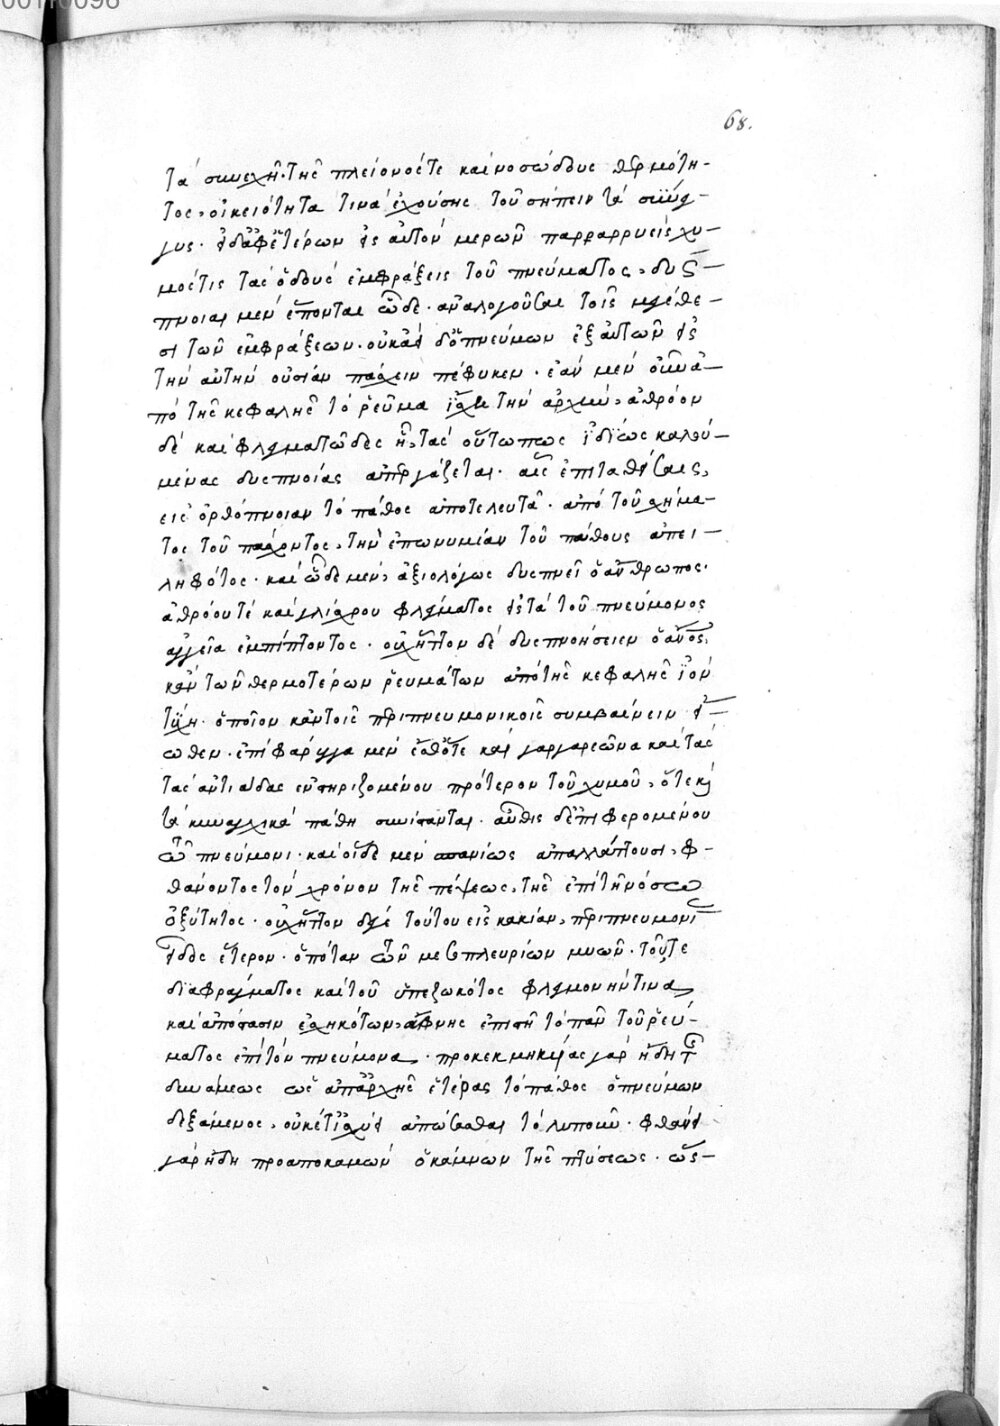 68.
τὰ συνεχῆ· τῆς πλείονός τε καὶ νοσώδους θερμότη-
τος, οἰκειότητά τινα ἐχούσης τοῦ σήπειν τὰ σύνεγ-
γυς· εἰ δ' ἀφ' ἑτέρων εἰς αὐτὸν μερῶν παραρρυεὶς χυ-
μός τις τὰς ὁδοὺς ἐμφράξεις τοῦ πνεύματος, δύσ-
πνοιαι μὲν ἕπονται ὧδε· ἀναλογοῦσαι τοῖς μεγέθε-
σι τῶν ἐμφράξεων· οὐκ ἀεὶ δ' ὁ πνεύμων ἐξ αὐτῶν εἰς
τὴν αὐτὴν οὐσίαν πάσχειν πέφυκεν· ἐὰν μὲν οὖν ἀ-
πὸ τῆς κεφαλῆς τὸ ῥεῦμα ἴσχῃ τὴν ἀρχὴν, ἀθρόον
δὲ καὶ φλεγματῶδες ᾖ, τὰς οὕτω πως ἰδίως καλου-
μένας δυσπνοίας ἀπεργάζεται· αἷς ἐπιταθείσαις,
εἰς ὀρθόπνοιαν τὸ πάθος ἀποτελευτᾷ· ἀπὸ τοῦ σχήμα-
τος τοῦ πάσχοντος, τὴν ἐπωνυμίαν τοῦ πάθους ἀπει-
ληφότος· καὶ ὧδε μὲν, ἀξιολόγως δυσπνεῖ ὁ ἄνθρωπος·
ἀθρόου τε καὶ γλίσχρου φλέγματος εἰς τὰ τοῦ πνεύμονος
ἀγγεῖα ἐμπίπτοντος· οὐχ ἧττον δὲ δυσπνοήσειεν ὁ ἄνος,
κἂν τῶν θερμοτέρων ῥευμάτων ἀπὸ τῆς κεφαλῆς ἰὸν
τύχῃ· ὁποῖον κἂν τοῖς περιπνευμονικοῖς συμβαίνειν εἴ-
ωθεν· ἐπὶ φάρυγγα μὲν ἔσθ' ὅτε καὶ γαργαρεῶνα καὶ τὰς
τὰς ἀντιάδας ἐνστηριζομένου πρότερον τοῦ χυμοῦ, ὅτε καὶ
τὰ κυναγχικὰ πάθη συνίστανται· αὖθις δ' ἐπιφερομένου
τῷ πνεύμονι· καὶ οἵδε μὲν σπανίως ἀπαλλάττουσι, φ-
θάνοντος τὸν χρόνον τῆς πέψεως, τῆς ἐπὶ τῇ νόσῳ
ὀξύτητος· οὐχ ἧττον δέ γε τούτου εἰς κακίαν, περιπνευμονί
εἶδος ἕτερον· ὁπόταν τῶν μεσοπλευρίων μυῶν· τοῦ τε
διαφράγματος καὶ τοῦ ὑπεζωκότος φλεγμονήν τινα
καὶ ἀπόστασιν ἐσχηκότων, ἄφνης ἐπιστῇ τὸ πᾶν τοῦ ῥεύ-
ματος ἐπὶ τὸν πνεύμονα· προκεκμηκυίας γὰρ ἤδη τῆς
δυνάμεως ὡς ἀπ' ἀρχῆς ἑτέρας τὸ πάθος ὁ πνεύμων
δεξάμενος, οὐκέτι ἰσχύει ἀπώσασθαι τὸ λυποῦν· φθάνει
γὰρ ἤδη προαποκαμὼν ὁ κάμνων τῆς πτύσεως· ὥς-